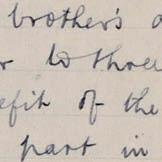 brother's
to three
efit of the
part in